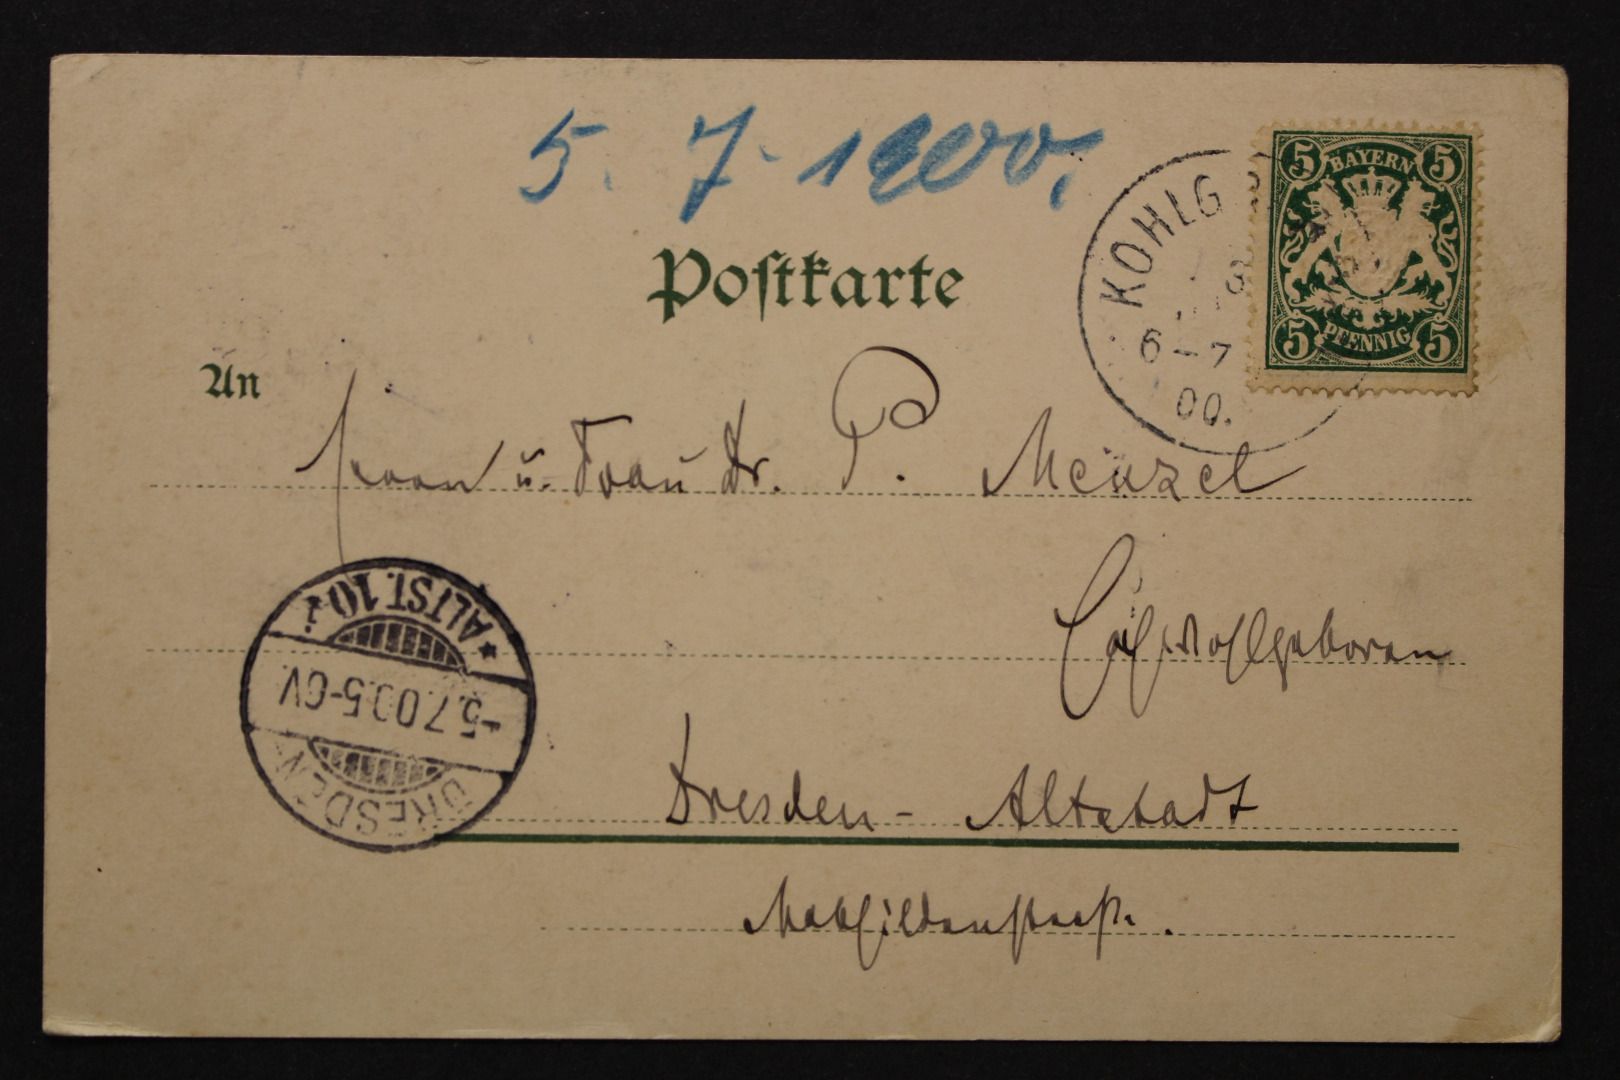 5. 7. 1900.
Postkarte
KOHLG
6-7
00.
5 BAYERN 5
5 PFENNIG 5
An
Herrn u. Frau Dr. P. Menzel
Hochwohlgeboren
ALTST. 10 i
-5.7.00.5-6V.
DRESDEN
Dresden - Altstadt
Mathildenstraße.